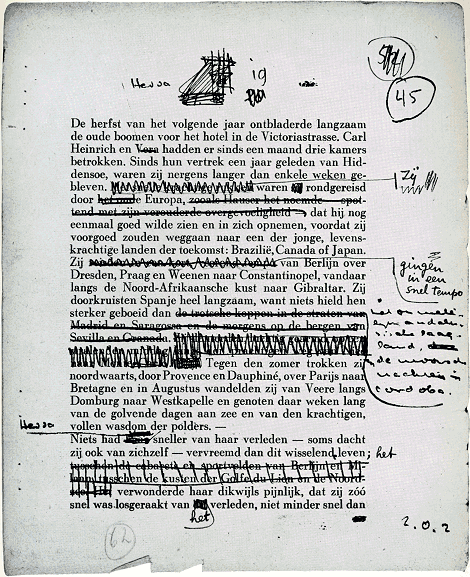 Herva
19
S 7/1
45
De herfst van het volgende jaar ontbladerde langzaam
de oude boomen voor het hotel in de Victoriastrasse. Carl
Heinrich en Vera hadden er sinds een maand drie kamers
betrokken. Sinds hun vertrek een jaar geleden van Hid-
densoe, waren zij nergens langer dan enkele weken ge-
bleven. waren rondgereisd
Zij
door Europa, zooals Hauser het noemde — spot-
tend met zijn verouderde overgevoeligheid — dat hij nog
eenmaal goed wilde zien en in zich opnemen, voordat zij
voorgoed zouden weggaan naar een der jonge, levens-
krachtige landen der toekomst: Brazilië, Canada of Japan.
Zij van Berlijn over
gingen
in een
snel tempo
Dresden, Praag en Weenen naar Constantinopel, vandaar
langs de Noord-Afrikaansche kust naar Gibraltar. Zij
doorkruisten Spanje heel langzaam, want niets hield hen
sterker geboeid dan de trotsche koppen in de straten van
Madrid en Saragossa en de morgens op de bergen van
Sevilla en Granada.
de
in
cordoba.
Tegen den zomer trokken zij
noordwaarts, door Provence en Dauphiné, over Parijs naar
Bretagne en in Augustus wandelden zij van Veere langs
Domburg naar Westkapelle en genoten daar weken lang
van de golvende dagen aan zee en van den krachtigen,
vollen wasdom der polders. —
Herva
Niets had sneller van haar verleden — soms dacht
zij ook van zichzelf — vervreemd dan dit wisselend leven; het
tusschen de cabarets en sportvelden van Berlijn en Mi-
tusschen de kusten der Golfe du Lion en de Noord-
verwonderde haar dikwijls pijnlijk, dat zij zóó
snel was losgeraakt van verleden, niet minder snel dan
het
62
2.0.2